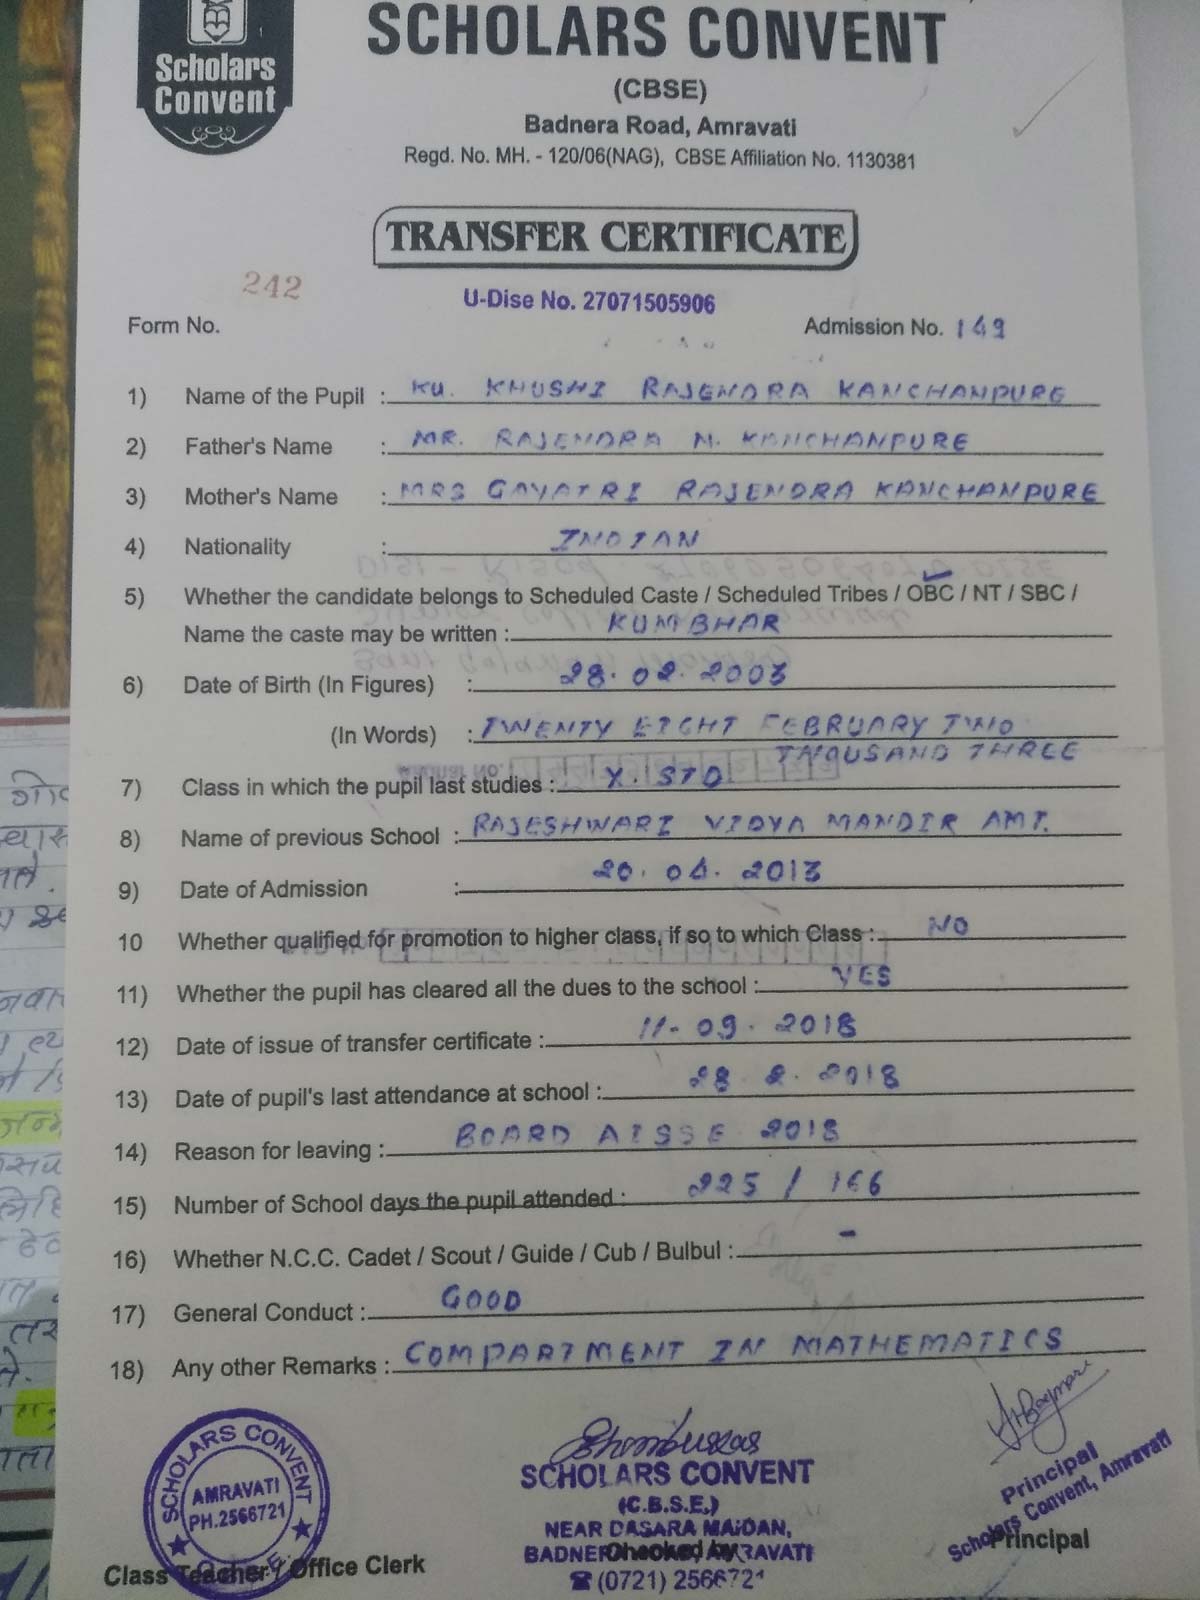 SCHOLARS CONVENT
Scholars
Convent
(CBSE)
Badnera Road, Amravati
Regd. No. MH. - 120/06(NAG), CBSE Affiliation No. 1130381
TRANSFER CERTIFICATE
242
U-Dise No. 27071505906
Form No.
Admission No. 149
1) Name of the Pupil : KU. KHUSHI RAJENDRA KANCHANPURE
2) Father's Name : MR. RAJENDRA N. KANCHANPURE
3) Mother's Name : MRS GAYATRI RAJENDRA KANCHANPURE
4) Nationality : INDIAN
5) Whether the candidate belongs to Scheduled Caste / Scheduled Tribes / OBC / NT / SBC /
Name the caste may be written : KUMBHAR
6) Date of Birth (In Figures) : 28.02.2003
(In Words) : TWENTY EIGHT FEBRUARY TWO
THOUSAND THREE
7) Class in which the pupil last studies : X. STD
8) Name of previous School : RAJESHWARI VIDYA MANDIR AMT.
9) Date of Admission : 20.04.2013
10 Whether qualified for promotion to higher class, if so to which Class : NO
11) Whether the pupil has cleared all the dues to the school : YES
12) Date of issue of transfer certificate : 11-09.2018
13) Date of pupil's last attendance at school : 28.2.2018
14) Reason for leaving : BOARD AISSE 2018
15) Number of School days the pupil attended : 225 / 166
16) Whether N.C.C. Cadet / Scout / Guide / Cub / Bulbul : -
17) General Conduct : GOOD
18) Any other Remarks : COMPARTMENT IN MATHEMATICS
SCHOLARS CONVENT
AMRAVATI
PH.2566721
Class Teacher / Office Clerk
SCHOLARS CONVENT
(C.B.S.E.)
NEAR DASARA MAIDAN,
Checked by
☎ (0721) 2566721
Principal
Scholars Convent, Amravati
Principal